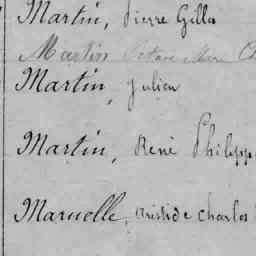 Martin, Pierre Gilles
Martin Octave Marie
Martin Julien
Martin, René Philippe
Maruelle, Aristide Charles